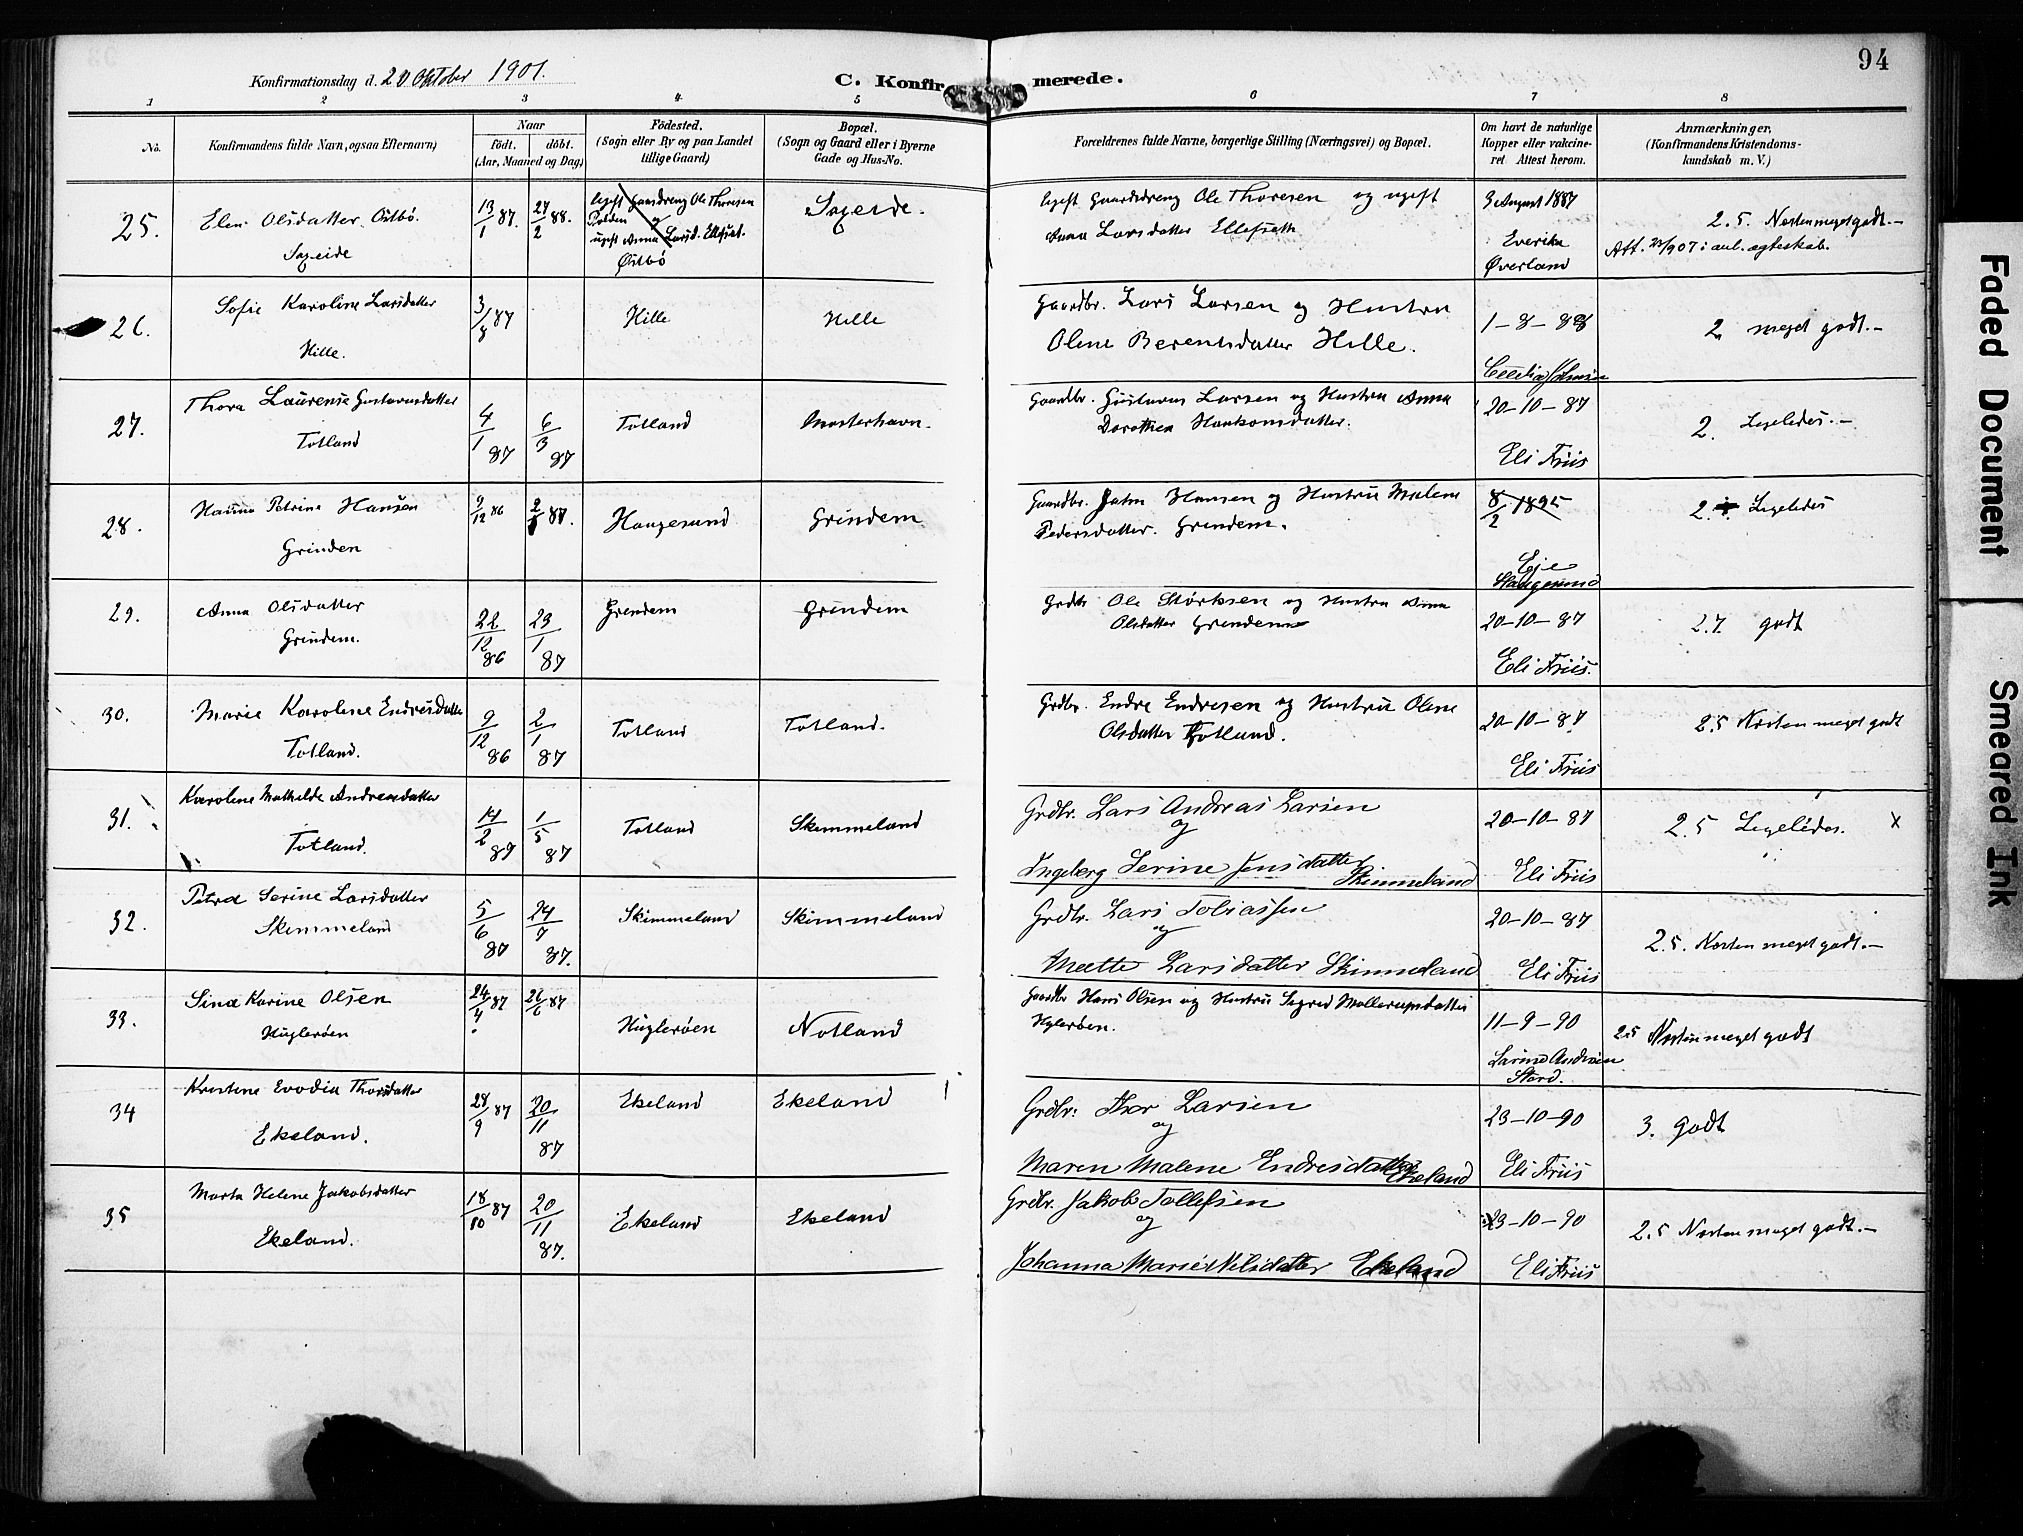 94
Konfirmationsdag d. 20 Oktober 1901.
C. Konfirmerede.
1 2 3 4 5 6 7 8
No.
Konfirmandens fulde Navn, ogsaa Efternavn)
Naar
født. døbt.
(Aar, Maaned og Dag)
Fødested.
(Sogn eller By og paa Landet
tillige Gaard)
Bopæl.
(Sogn og Gaard eller i Byerne
Gade og Hus-No.
Forældrenes fulde Navne, borgerlige Stilling (Næringsvei) og Bopæl.
Om havt de naturlige
Kopper eller vakcine-
ret Attest herom.
Anmærkninger,
(Konfirmandens Kristendoms-
kundskab m. V.)
25. Elen Olsdatter Østbø.
Sageide
13/1 87. 27/2 88.
Ugift Gaardsdreng Ole Thoresen
og
ugift Anna Larsd. Ellefsæt.
Østbø
Sageide.
Ugift Gaardsdreng Ole Thoresen og ugift
Anna Larsdatter Ellefsæth
3 August 1887
Everika
Øverland
2.5 Næsten meget godt.—
Att. 23/907 i anl. ægteskab.
26. Sofie Karoline Larsdatter
Hille.
3/8 87
Hille
Hille
Gaardbr. Lars Larsen og Hustru
Oline Berentsdatter Hille.
1-8-88
Cecelia
2 meget godt.—
27. Thora Laurense Gustavusdatter
Totland
4/1 87 6/3 87
Totland
Mosterhavn.
Gaardbr. Gustavus Larsen og Hustru Anna
Dorothea Haakonsdatter.
20-10-87
Eli Friis
2. Ligeledes.—
28. Hanna Petrine Hansen
Grinden
9/12 86 2/ 87.
Haugesund
Grindem
Gaardbr. John Hansen og Hustru Malene
Pedersdatter. Grindem.
8/2 1895
Eje
Haugesund
2. Ligeledes
29. Anna Olsdatter
Grindem.
22/12 86 23/1 87
Grindem
Grindem
Grdbr Ole Størksen og Hustru Anna
Olsdatter Grindem
20-10-87
Eli Friis.
2.7. godt
30. Marie Karoline Endresdatter
Totland.
9/12 86 2/1 87
Totland
Totland.
Grdbr. Endre Endresen og Hustru Oline
Olsdatter Totland.
20-10-87
Eli Friis
2.5 Næsten meget godt
31. Karoline Mathilde Andreasdatter
Totland.
14/2 87 1/5 87
Totland
Skimmeland
Grdbr. Lars Andreas Larsen
og
Ingeborg Serine Jensdatter
Skimmeland
20-10-87
Eli Friis
2.5 Ligeledes. X
32. Petra Serine Larsdatter
Skimmeland
5/6 87 24/7 87.
Skimmeland
Skimmeland
Grdbr. Lars Tobiassen
og
Mætte Larsdatter Skimmeland
20-10-87
Eli Friis
2.5. Næsten meget godt.—
33. Sina Karine Olsen
Huglerøen
24/4 87 26/6 87
Huglerøen
Notland
Gaardbr Hans Olsen og Hustru Sigrid Mallerupsdatter
Hglerøen.
11-9-90
Larine Andersen
Stord.
2.5 Næsten meget godt
34 Kristine Evodia Thorsdatter
Ekeland.
28/9 87 20/11 87
Ekeland
Ekeland
Grdbr: Thor Larsen
og
Maren Malene Endresdatter
Ekeland
23-10-90
Eli Friis
3. godt
35 Marta Helene Jakobsdatter
Ekeland.
18/10 87 20/11 87.
Ekeland
Ekeland
Grdbr. Jakob Tollefsen
og
Johanna Marie Nilsdatter Ekeland
23-10-90
Eli Friis
2.5 Næsten meget godt.—
Faded Document
Smeared Ink